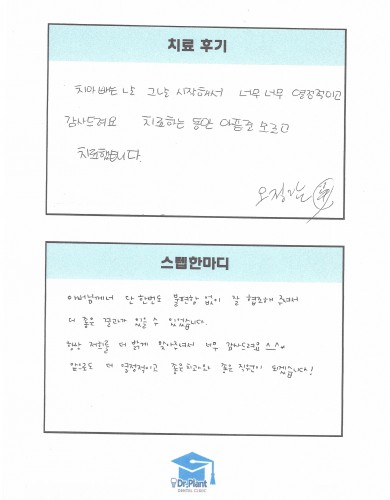 치료 후기
치아 빼는 날 그날 시작해서 너무너무 열정적이고
감사드려요 치료하는 동안 아픔도 모르고
치료했습니다.
스탭한마디
아버님께서 단 한번도 불편함 없이 잘 협조해 주셔서
더 좋은 결과가 있을 수 있었습니다.
항상 저희를 더 밝게 맞아주셔서 너무 감사드려요 ^^
앞으로도 더 열정적이고 좋은 치과 좋은 직원이 되겠습니다!
Dr.Plant
DENTAL CLINIC